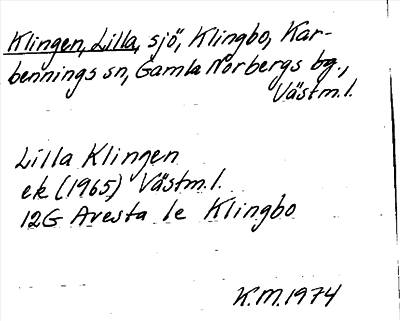 Klingen, Lilla, sjö, Klingbo, Kar-
bennings sn, Gamla Norbergs bg.,
Västm.l.
Lilla Klingen
ek (1965) Västm.l.
12G Avesta 1e Klingbo
K.M.1974